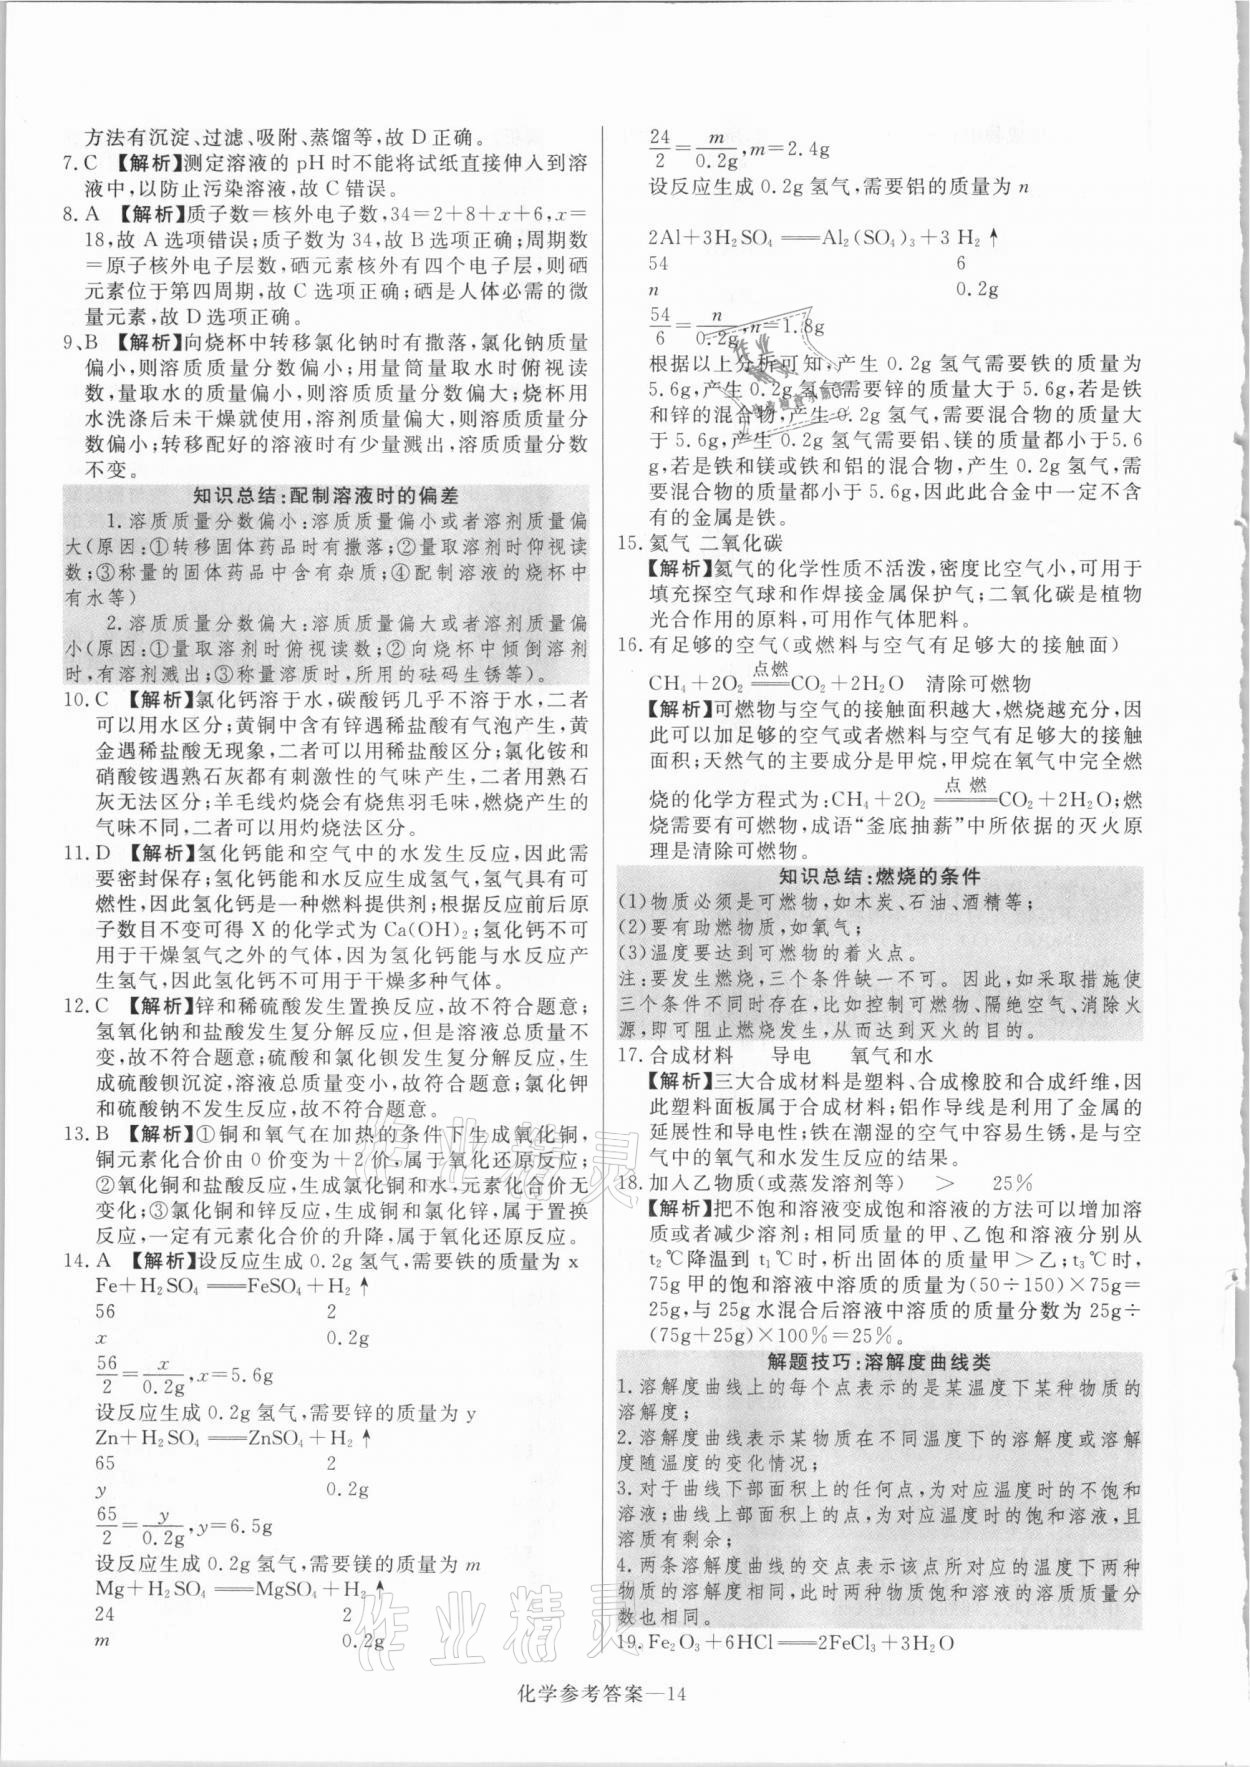 方法有沉淀、过滤、吸附、蒸馏等,故D正确。
7. C 【解析】测定溶液的 pH 时不能将试纸直接伸入到溶
液中,以防止污染溶液,故 C 错误。
8. A 【解析】质子数=核外电子数,34=2+8+x+6,x=
18,故 A 选项错误;质子数为 34,故 B 选项正确;周期数
=原子核外电子层数,硒元素核外有四个电子层,则硒
元素位于第四周期,故 C 选项正确;硒是人体必需的微
量元素,故 D 选项正确。
9. B 【解析】向烧杯中转移氯化钠时有撒落,氯化钠质量
偏小,则溶质质量分数偏小;用量筒量取水时俯视读
数,量取水的质量偏小,则溶质质量分数偏大;烧杯用
水洗涤后未干燥就使用,溶剂质量偏大,则溶质质量分
数偏小;转移配好的溶液时有少量溅出,溶质质量分数
不变。
知识总结:配制溶液时的偏差
1. 溶质质量分数偏小:溶质质量偏小或者溶剂质量偏
大(原因:①转移固体药品时有撒落;②量取溶剂时仰视读
数;③称量的固体药品中含有杂质;④配制溶液的烧杯中
有水等)
2. 溶质质量分数偏大:溶质质量偏大或者溶剂质量偏
小(原因:①量取溶剂时俯视读数;②向烧杯中倾倒溶剂
时,有溶剂溅出;③称量溶质时,所用的砝码生锈等)。
10. C 【解析】氯化钙溶于水,碳酸钙几乎不溶于水,二者
可以用水区分;黄铜中含有锌遇稀盐酸有气泡产生,黄
金遇稀盐酸无现象,二者可以用稀盐酸区分;氯化铵和
硝酸铵遇熟石灰都有刺激性的气味产生,二者用熟石
灰无法区分;羊毛线灼烧会有烧焦羽毛味,燃烧产生的
气味不同,二者可以用灼烧法区分。
11. D 【解析】氢化钙能和空气中的水发生反应,因此需
要密封保存;氢化钙能和水反应生成氢气,氢气具有可
燃性,因此氢化钙是一种燃料提供剂;根据反应前后原
子数目不变可得 X 的化学式为 Ca(OH)₂;氢化钙不可
用于干燥氢气之外的气体,因为氢化钙能与水反应产
生氢气,因此氢化钙不可用于干燥多种气体。
12. C 【解析】锌和稀硫酸发生置换反应,故不符合题意;
氢氧化钠和盐酸发生复分解反应,但是溶液总质量不
变,故不符合题意;硫酸和氯化钡发生复分解反应,生
成硫酸钡沉淀,溶液总质量变小,故符合题意;氯化钾
和硫酸钠不发生反应,故不符合题意。
13. B 【解析】①铜和氧气在加热的条件下生成氧化铜,
铜元素化合价由 0 价变为+2 价,属于氧化还原反应;
②氧化铜和盐酸反应,生成氯化铜和水,元素化合价无
变化;③氯化铜和锌反应,生成铜和氯化锌,属于置换
反应,一定有元素化合价的升降,属于氧化还原反应。
14. A 【解析】设反应生成 0.2g 氢气,需要铁的质量为 x
Fe+H₂SO₄══FeSO₄+H₂↑
56 2
x 0.2g
56/2=x/0.2g,x=5.6g
设反应生成 0.2g 氢气,需要锌的质量为 y
Zn+H₂SO₄══ZnSO₄+H₂↑
65 2
y 0.2g
65/2=y/0.2g,y=6.5g
设反应生成 0.2g 氢气,需要镁的质量为 m
Mg+H₂SO₄══MgSO₄+H₂↑
24 2
m 0.2g
24/2=m/0.2g,m=2.4g
设反应生成 0.2g 氢气,需要铝的质量为 n
2Al+3H₂SO₄══Al₂(SO₄)₃+3H₂↑
54 6
n 0.2g
54/6=n/0.2g,n=1.8g
根据以上分析可知,产生 0.2g 氢气需要铁的质量为
5.6g,产生 0.2g 氢气需要锌的质量大于 5.6g,若是铁
和锌的混合物,产生 0.2g 氢气,需要混合物的质量大
于 5.6g,产生 0.2g 氢气需要铝、镁的质量都小于5.6
g,若是铁和镁或铁和铝的混合物,产生 0.2g 氢气,需
要混合物的质量都小于 5.6g,因此此合金中一定不含
有的金属是铁。
15. 氦气 二氧化碳
【解析】氦气的化学性质不活泼,密度比空气小,可用于
填充探空气球和作焊接金属保护气;二氧化碳是植物
光合作用的原料,可用作气体肥料。
16. 有足够的空气(或燃料与空气有足够大的接触面)
CH₄+2O₂ 点燃══ CO₂+2H₂O 清除可燃物
【解析】可燃物与空气的接触面积越大,燃烧越充分,因
此可以加足够的空气或者燃料与空气有足够大的接触
面积;天然气的主要成分是甲烷,甲烷在氧气中完全燃
烧的化学方程式为:CH₄+2O₂ 点燃══ CO₂+2H₂O;燃
烧需要有可燃物,成语“釜底抽薪”中所依据的灭火原
理是清除可燃物。
知识总结:燃烧的条件
(1)物质必须是可燃物,如木炭、石油、酒精等;
(2)要有助燃物质,如氧气;
(3)温度要达到可燃物的着火点。
注:要发生燃烧,三个条件缺一不可。因此,如采取措施使
三个条件不同时存在,比如控制可燃物、隔绝空气、消除火
源,即可阻止燃烧发生,从而达到灭火的目的。
17. 合成材料 导电 氧气和水
【解析】三大合成材料是塑料、合成橡胶和合成纤维,因
此塑料面板属于合成材料;铝作导线是利用了金属的
延展性和导电性;铁在潮湿的空气中容易生锈,是与空
气中的氧气和水发生反应的结果。
18. 加入乙物质(或蒸发溶剂等) > 25%
【解析】把不饱和溶液变成饱和溶液的方法可以增加溶
质或者减少溶剂;相同质量的甲、乙饱和溶液分别从
t₂℃降温到 t₁℃时,析出固体的质量甲>乙;t₃℃时,
75g 甲的饱和溶液中溶质的质量为(50÷150)×75g=
25g,与 25g 水混合后溶液中溶质的质量分数为 25g÷
(75g+25g)×100%=25%。
解题技巧:溶解度曲线类
1. 溶解度曲线上的每个点表示的是某温度下某种物质的
溶解度;
2. 溶解度曲线表示某物质在不同温度下的溶解度或溶解
度随温度的变化情况;
3. 对于曲线下部面积上的任何点,为对应温度时的不饱和
溶液;曲线上部面积上的点,为对应温度时的饱和溶液,且
溶质有剩余;
4. 两条溶解度曲线的交点表示该点所对应的温度下两种
物质的溶解度相同,此时两种物质饱和溶液的溶质质量分
数也相同。
19. Fe₂O₃+6HCl══2FeCl₃+3H₂O
化学参考答案—14
作业精灵
作业精灵